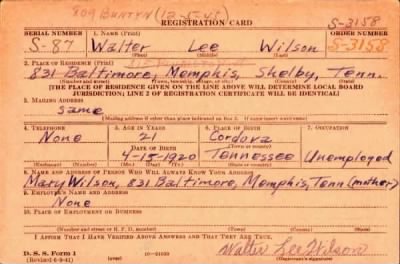 809 BUNTYN (12-5-41)
REGISTRATION CARD
SERIAL NUMBER 1. NAME (Print) ORDER NUMBER
S-87 Walter Lee Wilson S-3158
S-3158
(First) (Middle) (Last)
2. PLACE OF RESIDENCE (Print)
831 Baltimore, Memphis, Shelby, Tenn.
[THE PLACE OF RESIDENCE GIVEN ON THE LINE ABOVE WILL DETERMINE LOCAL BOARD
JURISDICTION; LINE 2 OF REGISTRATION CERTIFICATE WILL BE IDENTICAL]
3. MAILING ADDRESS
Same
[Mailing address if other than place indicated on line 2. If same insert word same]
4. TELEPHONE 5. AGE IN YEARS 6. PLACE OF BIRTH 7. OCCUPATION
None 21 Cordova
DATE OF BIRTH (Town or county)
4-15-1920 Tennessee Unemployed
(Exchange) (Number) (Mo.) (Day) (Yr.) (State or country)
8. NAME AND ADDRESS OF PERSON WHO WILL ALWAYS KNOW YOUR ADDRESS
Mary Wilson, 831 Baltimore, Memphis, Tenn (mother)
9. EMPLOYER'S NAME AND ADDRESS
None
10. PLACE OF EMPLOYMENT OR BUSINESS
(Number and street or R. F. D. number) (Town) (County) (State)
I AFFIRM THAT I HAVE VERIFIED ABOVE ANSWERS AND THAT THEY ARE TRUE.
D. S. S. Form 1 Walter Lee Wilson
(Revised 6-9-41) (over) 16-21630 (Registrant's signature)